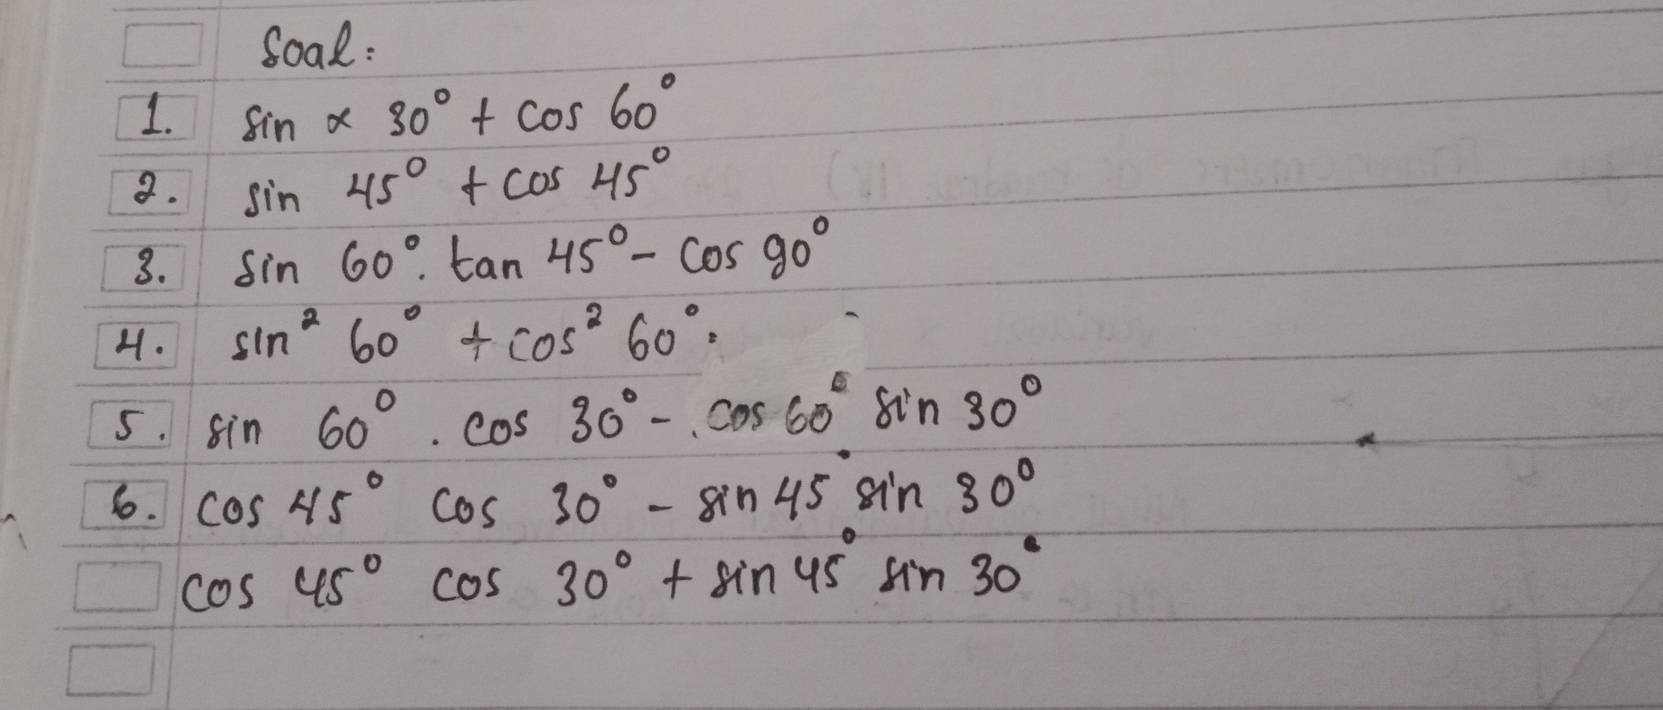 Soal:
1. sin ∝ 30° + cos 60°
2. sin 45° + cos 45°
3. sin 60°. tan 45° - cos 90°
4. sin² 60° + cos² 60°.
5. sin 60° . cos 30° - . cos 60° sin 30°
6. cos 45° cos 30° - sin 45° sin 30°
cos 45° cos 30° + sin 45° sin 30°